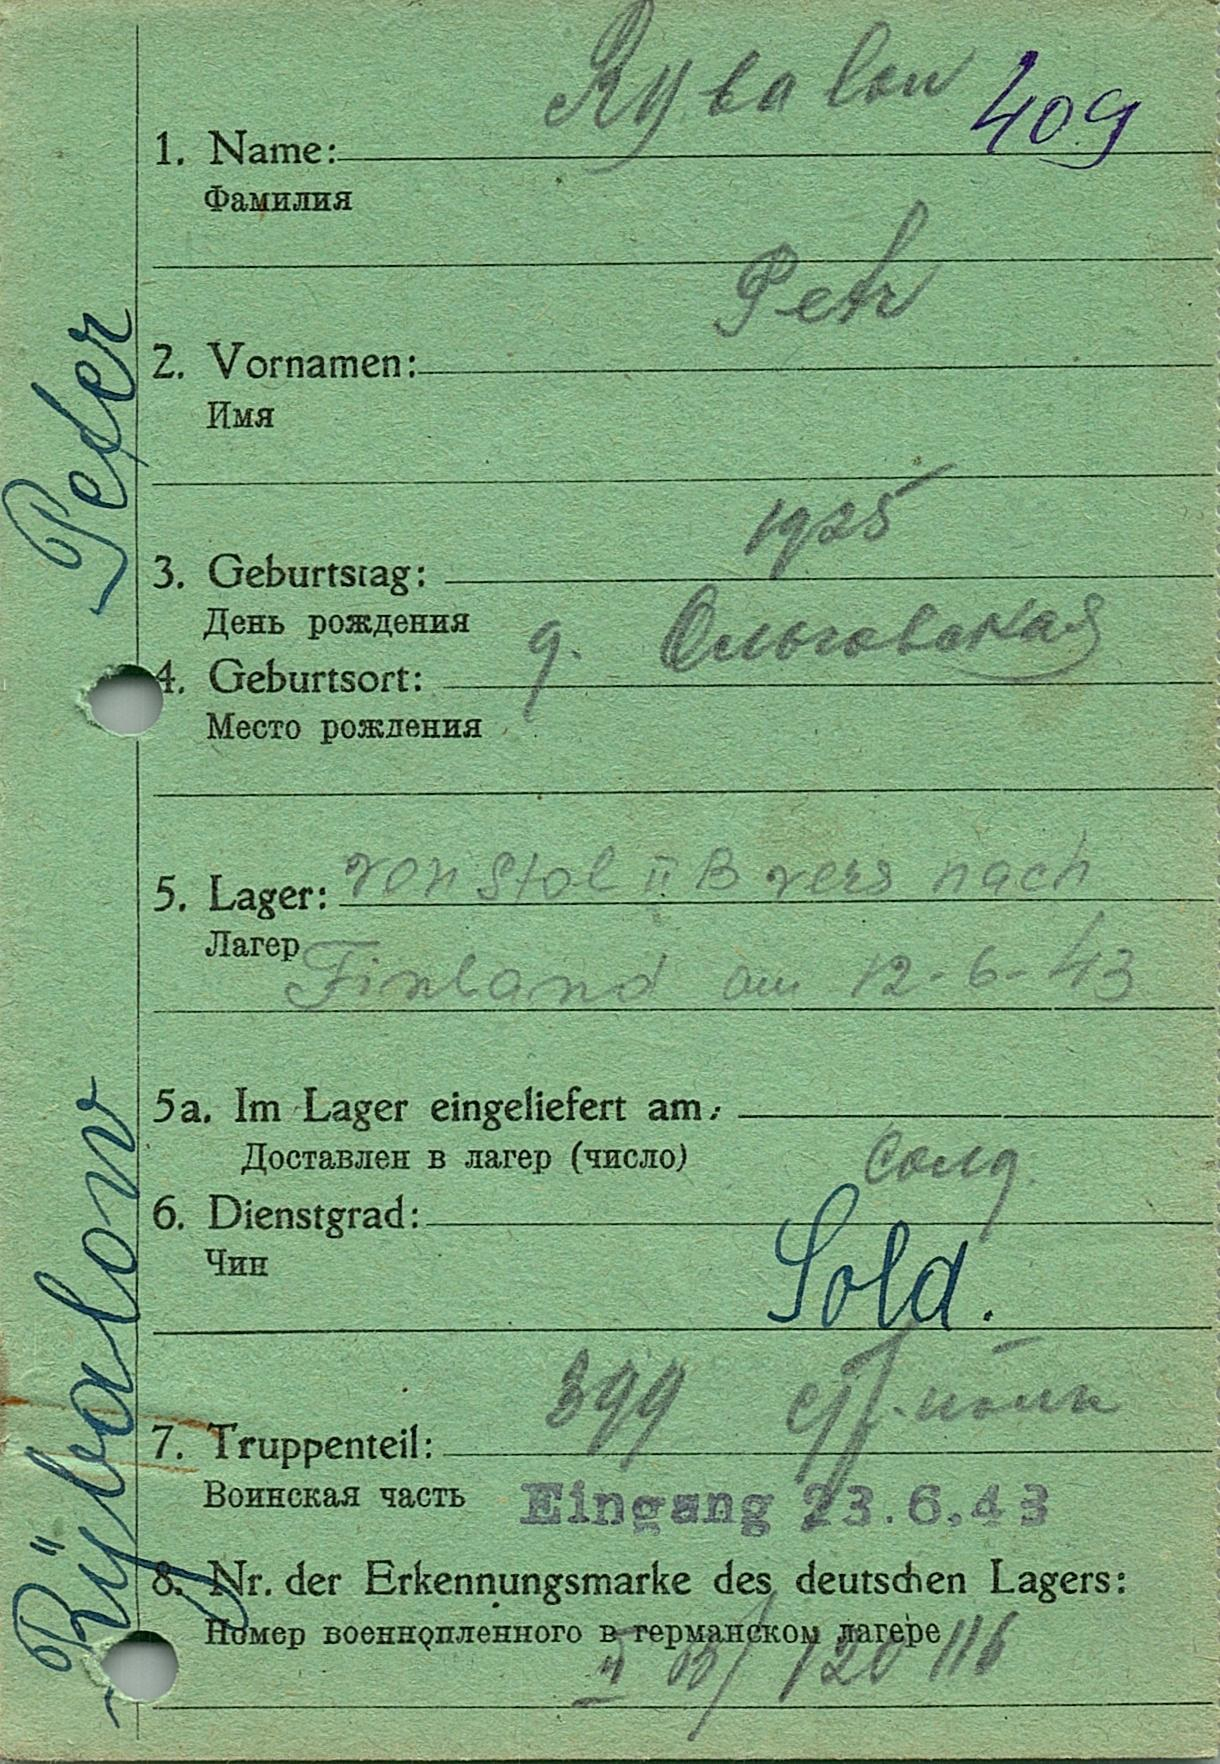 Rybalow 409
1. Name:
Фамилия
Petr
2. Vornamen:
Имя
1925
3. Geburtstag:
День рождения
д. Ольговская
4. Geburtsort:
Место рождения
von Stal II B vers nach
5. Lager:
Лагер
Finland am 12-6-43
5a. Im Lager eingeliefert am:
Доставлен в лагер (число)
солд.
6. Dienstgrad:
Чин
Sold.
399 стр. полк
7. Truppenteil:
Воинская часть
Eingang 23.6.43
8. Nr. der Erkennungsmarke des deutschen Lagers:
Номер военнопленного в германском лагере
II B/ 120 116
Peter
Rÿbalow